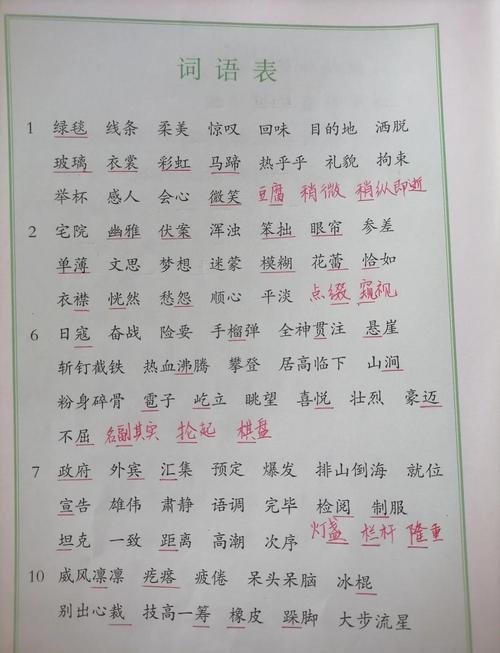 词语表
1 绿毯 线条 柔美 惊叹 回味 目的地 洒脱
玻璃 衣裳 彩虹 马蹄 热乎乎 礼貌 拘束
举杯 感人 会心 微笑 豆腐 稍微 稍纵即逝
2 宅院 幽雅 伏案 浑浊 笨拙 眼帘 参差
单薄 文思 梦想 迷蒙 模糊 花蕾 恰如
衣襟 恍然 愁怨 顺心 平淡 点缀 窥视
6 日寇 奋战 险要 手榴弹 全神贯注 悬崖
斩钉截铁 热血沸腾 攀登 居高临下 山涧
粉身碎骨 雹子 屹立 眺望 喜悦 壮烈 豪迈
不屈 名副其实 抡起 棋盘
7 政府 外宾 汇集 预定 爆发 排山倒海 就位
宣告 雄伟 肃静 语调 完毕 检阅 制服
坦克 一致 距离 高潮 次序 灯盏 栏杆 隆重
10 威风凛凛 疙瘩 疲倦 呆头呆脑 冰棍
别出心裁 技高一筹 橡皮 跺脚 大步流星